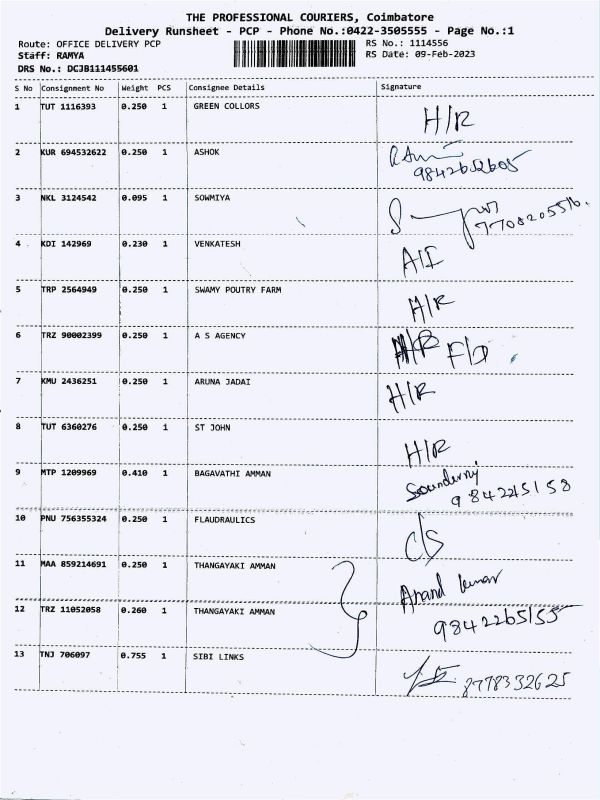 THE PROFESSIONAL COURIERS, Coimbatore
Delivery Runsheet - PCP - Phone No.:0422-3505555 - Page No.:1
Route: OFFICE DELIVERY PCP RS No.: 1114556
Staff: RAMYA RS Date: 09-Feb-2023
DRS No.: DCJB111455601
S No Consignment No Weight PCS Consignee Details Signature
1 TUT 1116393 0.250 1 GREEN COLLORS H/R
2 KUR 694532622 0.250 1 ASHOK
9842652605
3 NKL 3124542 0.095 1 SOWMIYA
7708205516.
4 KDI 142969 0.230 1 VENKATESH
5 TRP 2564949 0.250 1 SWAMY POUTRY FARM H/R
6 TRZ 90002399 0.250 1 A S AGENCY H/R
7 KMU 2436251 0.250 1 ARUNA JADAI H/R
8 TUT 6360276 0.250 1 ST JOHN H/R
9 MTP 1209969 0.410 1 BAGAVATHI AMMAN
9842245158
10 PNU 756355324 0.250 1 FLAUDRAULICS C/S
11 MAA 859214691 0.250 1 THANGAYAKI AMMAN Anand kumar
12 TRZ 11052058 0.260 1 THANGAYAKI AMMAN 9842265155
13 TNJ 706097 0.755 1 SIBI LINKS 8778332625